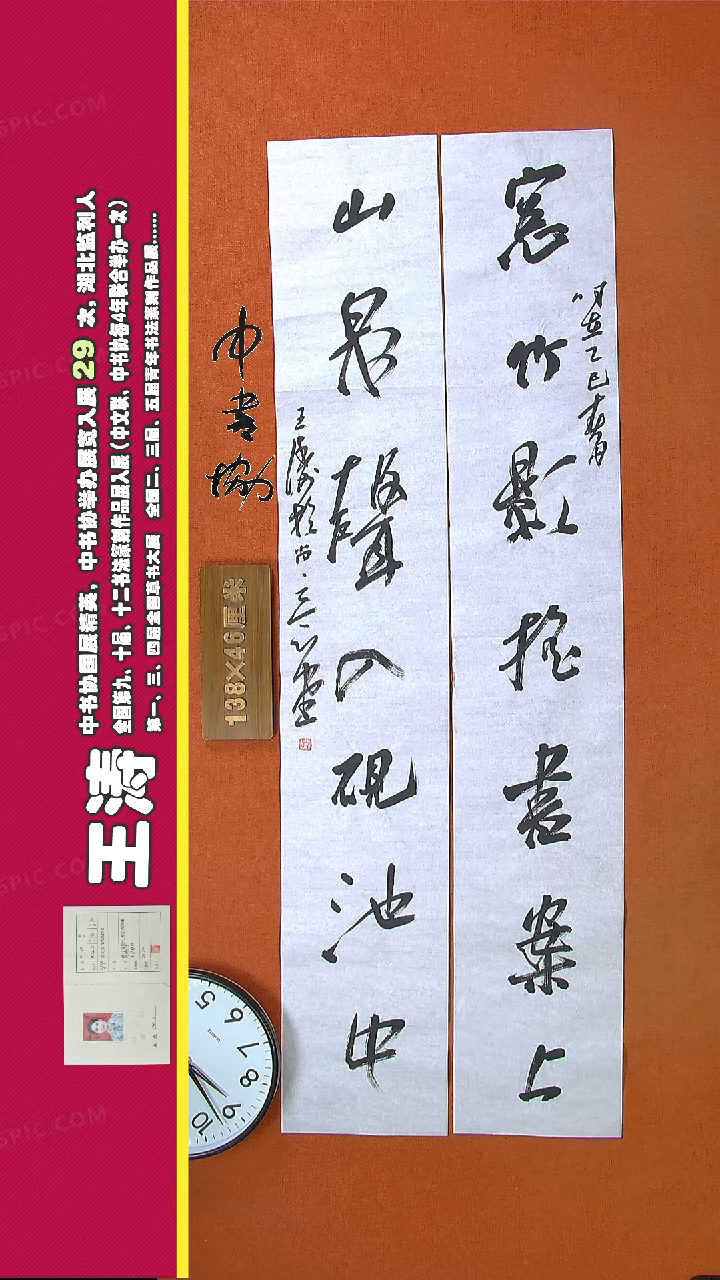 窓竹影摇書案上
時在乙巳春月
山泉聲入硯池中
王濤於京三一堂
中書協
138×46厘米
王涛
中书协国展精英，中书协举办展览入展 29 次，湖北监利人
全国第九、十届、十二书法篆刻作品展入展（中文联、中书协每4年联合举办一次）
第一、三、四届全国草书大展 全国二、三届、五届青年书法篆刻作品展……
5
6
7
8
9
10